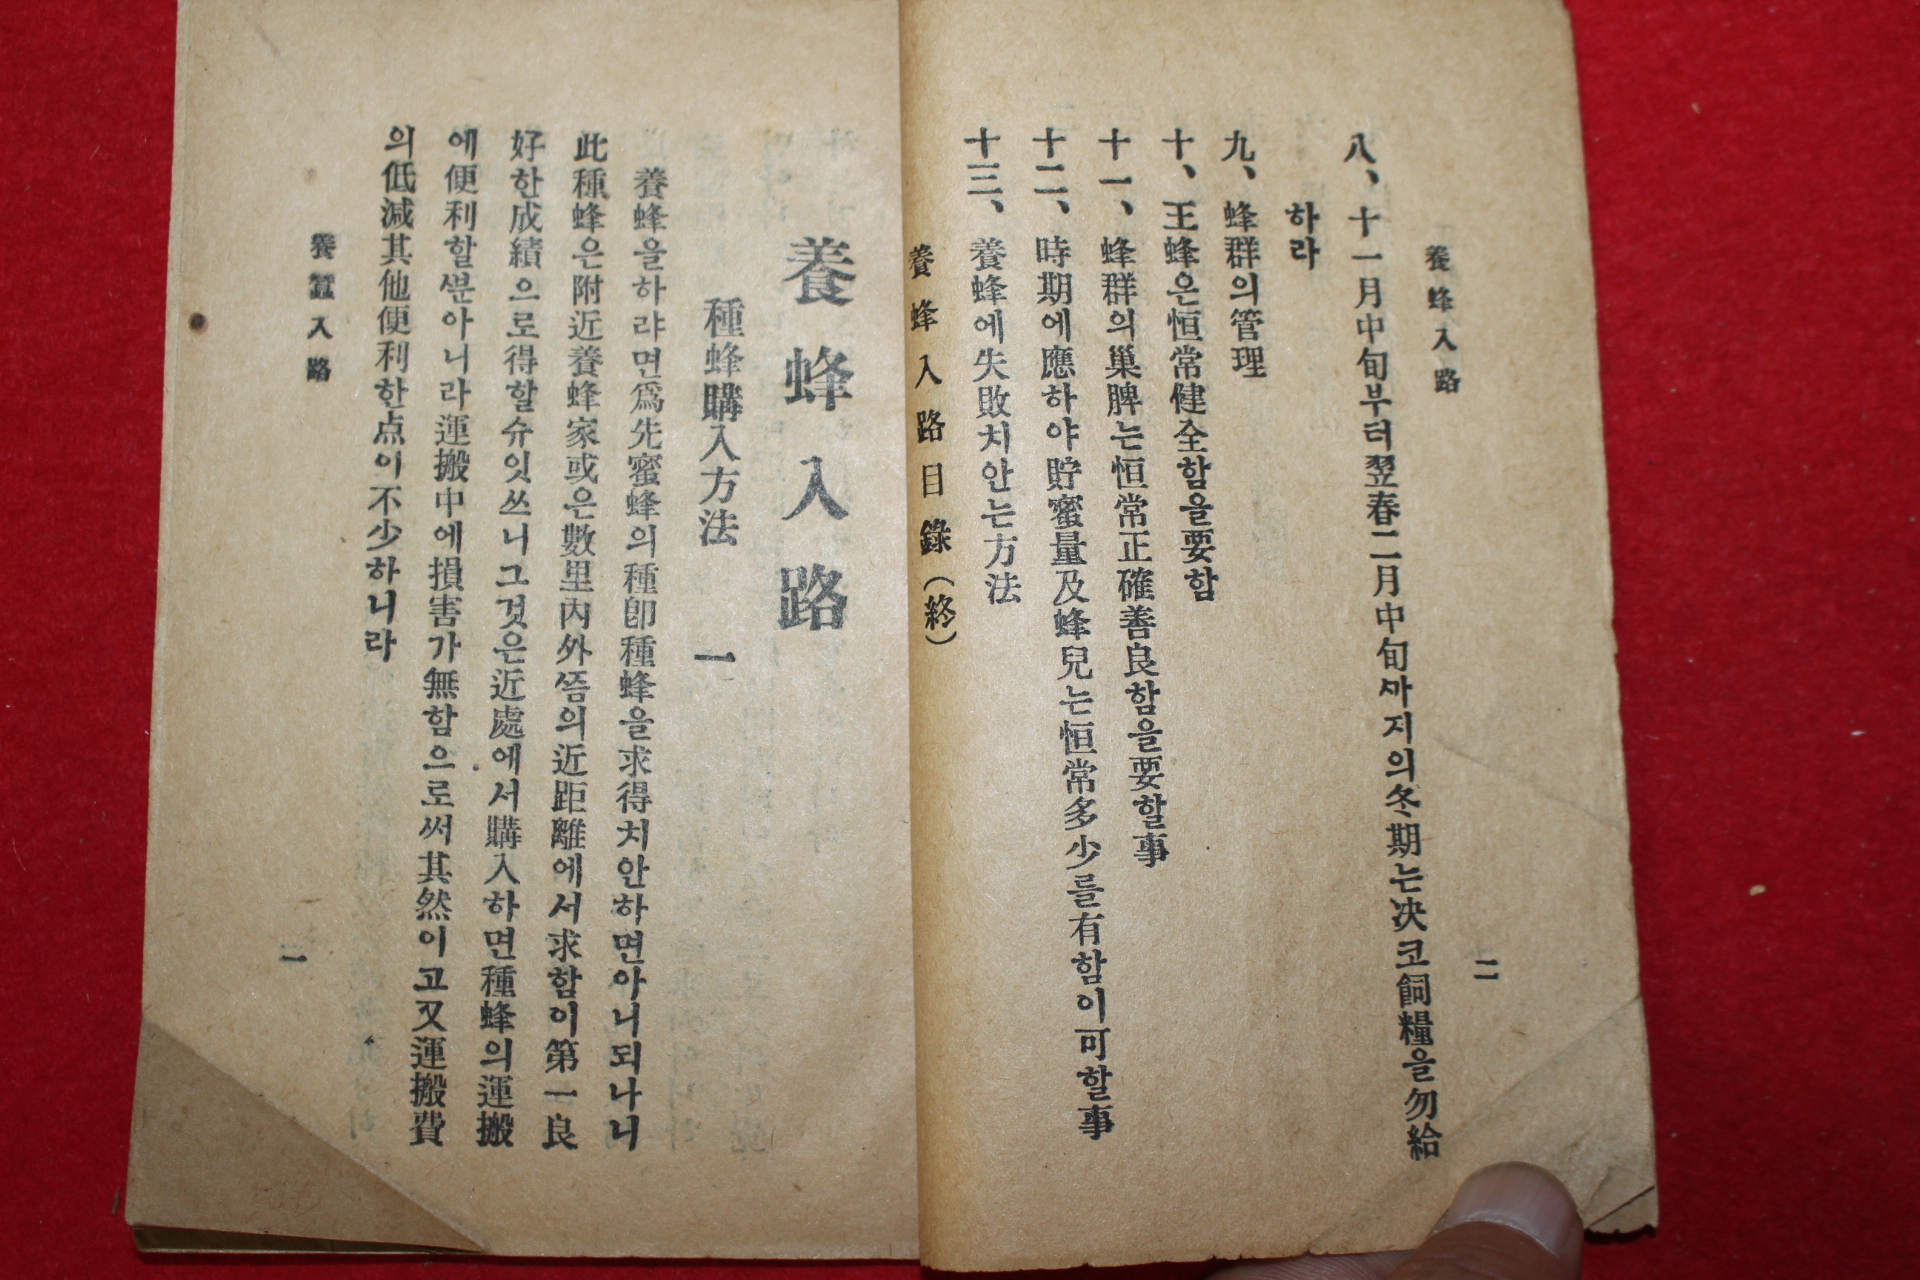 養蜂入路
二
八、十一月中旬부터翌春二月中旬까지의冬期는决코飼糧을勿給
하라
九、蜂群의管理
十、王蜂은恒常健全함을要함
十一、蜂群의巢脾는恒常正確善良함을要할事
十二、時期에應하야貯蜜量及蜂兒는恒常多少를有함이可할事
十三、養蜂에失敗치안는方法
養蜂入路目錄(終)
養蜂入路
種蜂購入方法 一
養蜂을하랴면爲先蜜蜂의種卽種蜂을求得치안하면아니되나니
此種蜂은附近養蜂家或은數里內外쯤의近距離에서求함이第一良
好한成績으로得할슈잇쓰니그것은近處에서購入하면種蜂의運搬
에便利할뿐아니라運搬中에損害가無함으로써其然이고又運搬費
의低減其他便利한点이不少하니라
養蠶入路
一